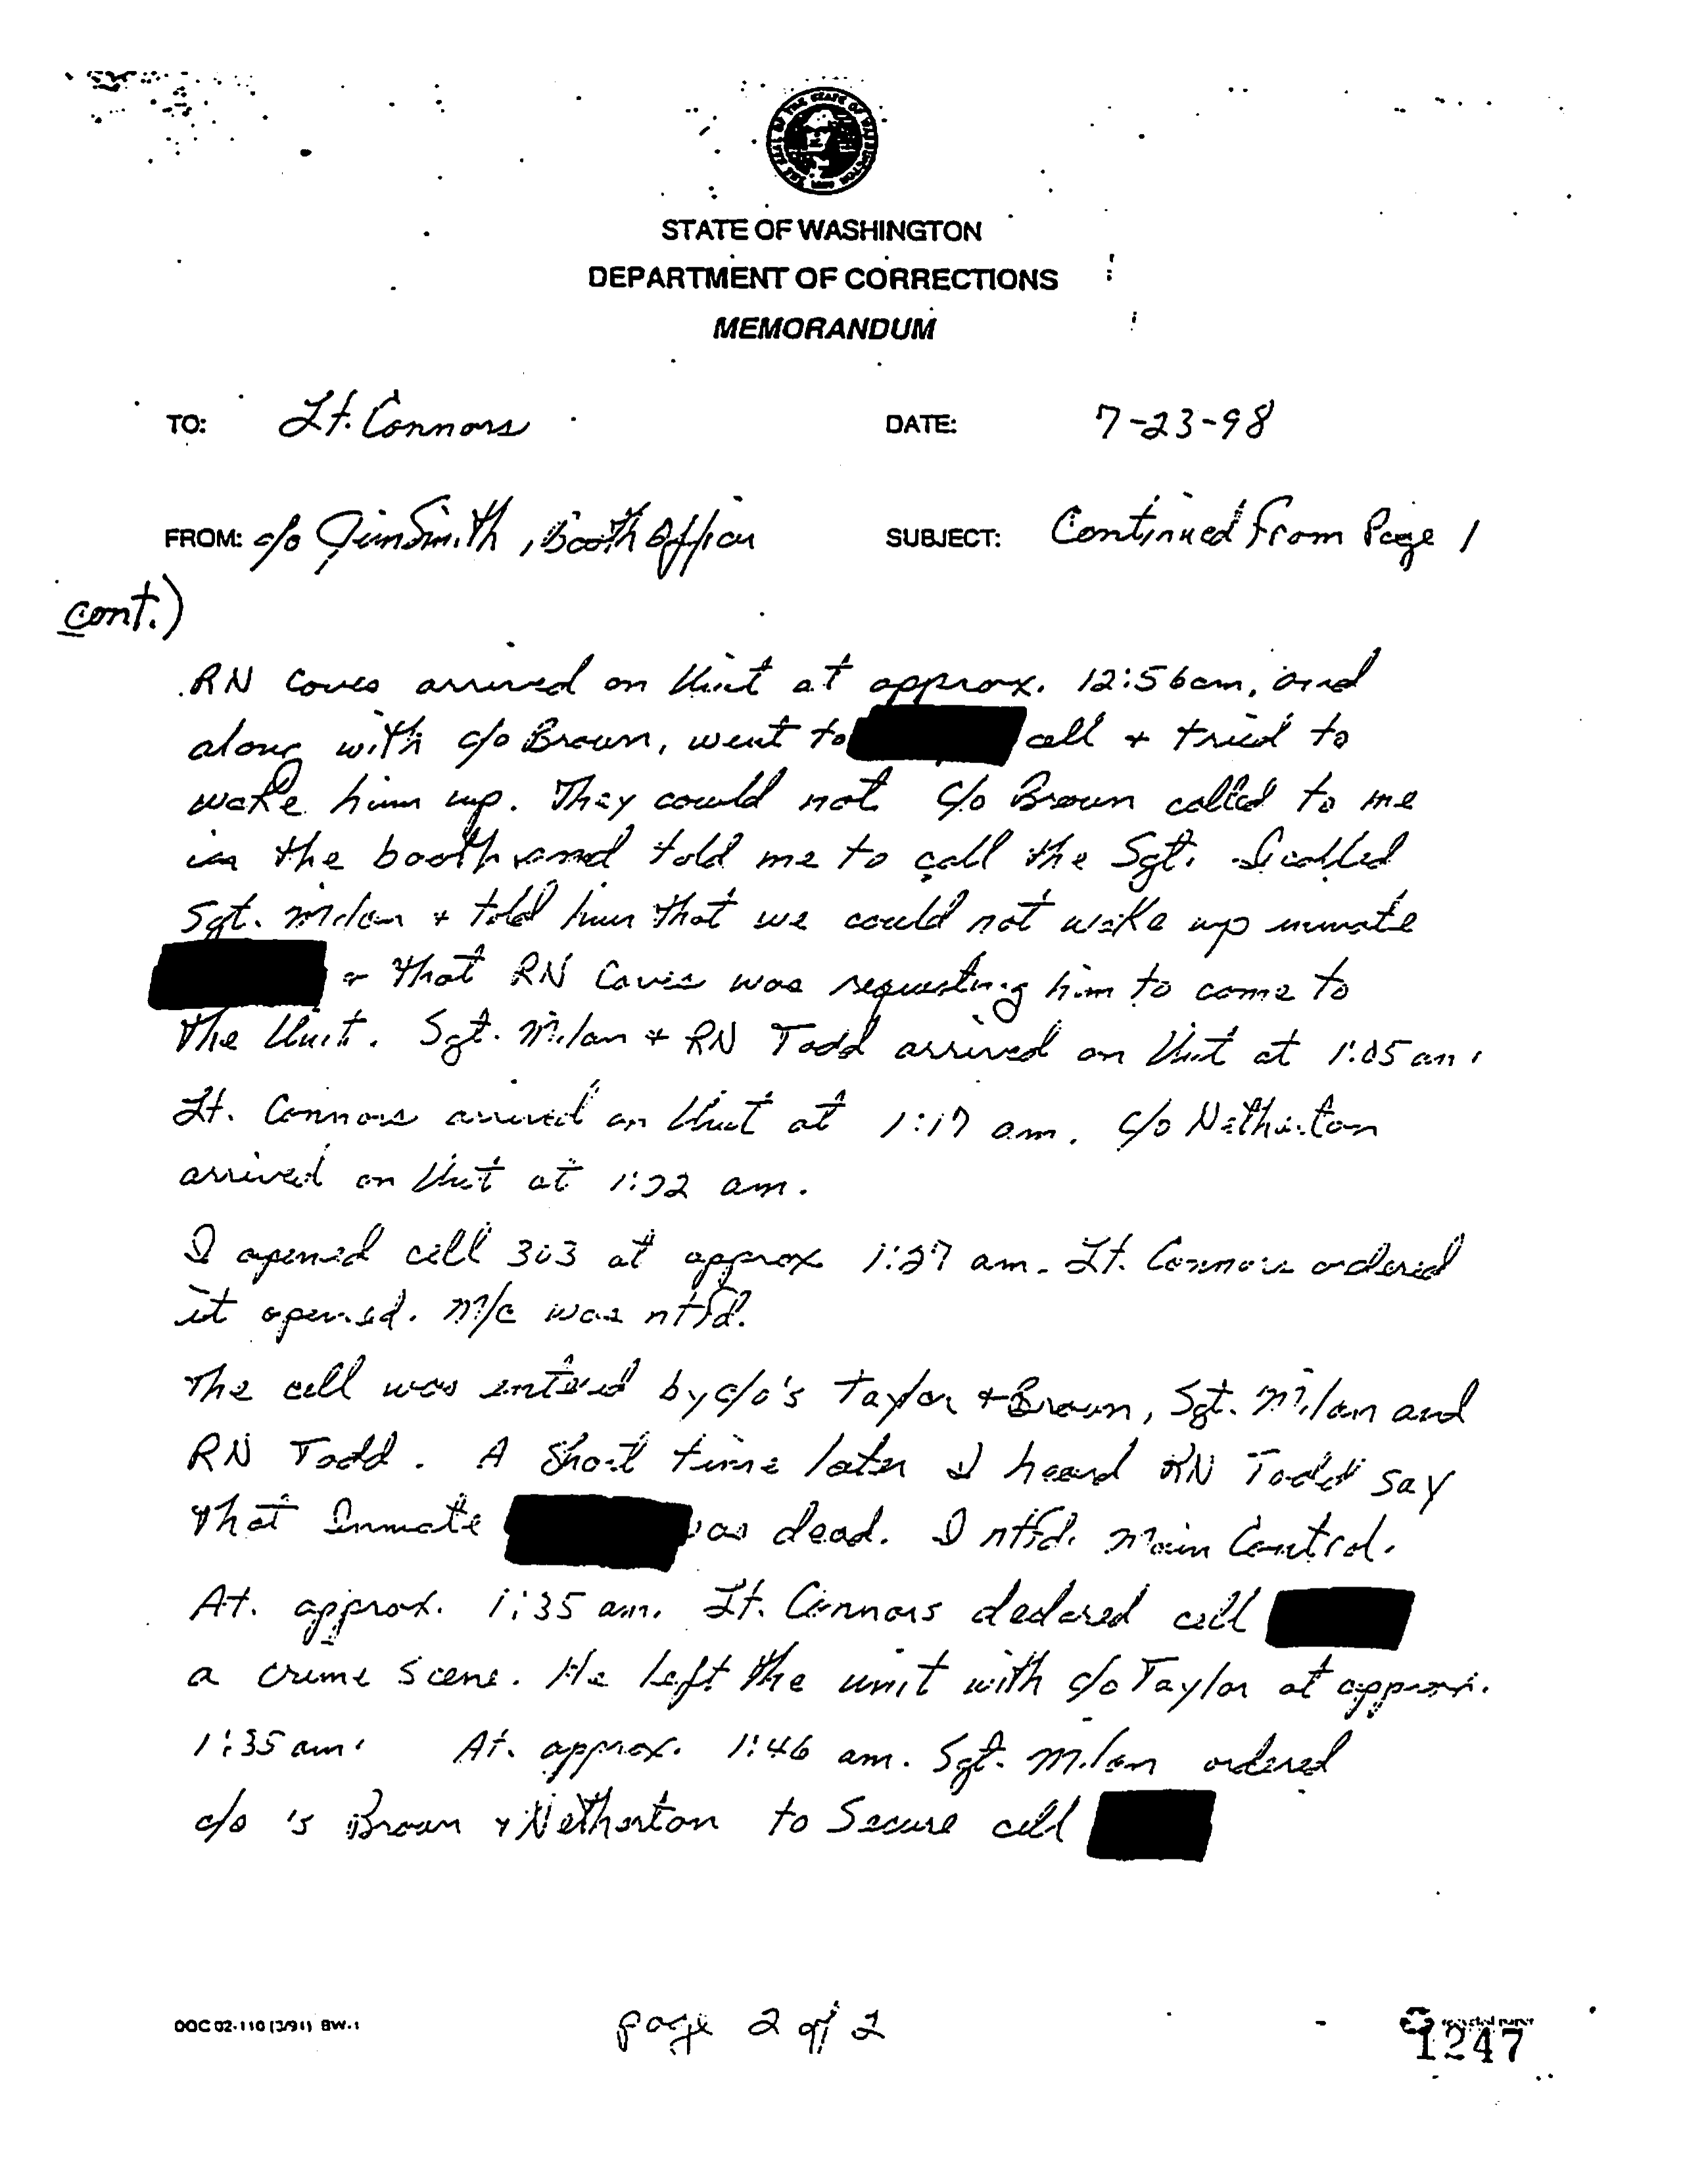 THE STATE OF WASHINGTON
STATE OF WASHINGTON
DEPARTMENT OF CORRECTIONS
MEMORANDUM
TO: Lt. Connors DATE: 7-23-98
FROM: c/o Jim Smith, Booth Officer SUBJECT: Continued From Page 1
cont.)
RN arrived on Unit at approx. 12:56am, and
along with c/o Brown, went to cell + tried to
wake him up. They could not. C/o Brown called to me
in the booth and told me to call the Sgt. I called
Sgt. Milan + told him that we could not wake up inmate
+ that RN was requesting him to come to
the Unit. Sgt. Milan + RN Todd arrived on Unit at 1:05 am.
Lt. Connors arrived on Unit at 1:17 am. C/o Netherton
arrived on Unit at 1:22 am.
I opened cell 303 at approx 1:27 am. Lt. Connors ordered
it opened. M/C was ntfd.
The cell was entered by c/o's Taylor + Brown, Sgt. Milan and
RN Todd. A Short time later I heard RN Todd say
that Inmate was dead. I ntfd. Main Control.
At. approx. 1:35 am. Lt. Connors declared cell
a crime scene. He left the unit with c/o Taylor at approx.
1:35 am. At. approx. 1:46 am. Sgt. Milan ordered
c/o 's Brown + Netherton to Secure cell
DOC 02-110 (3/91) BW-1 page 2 of 2 recycled paper
1247